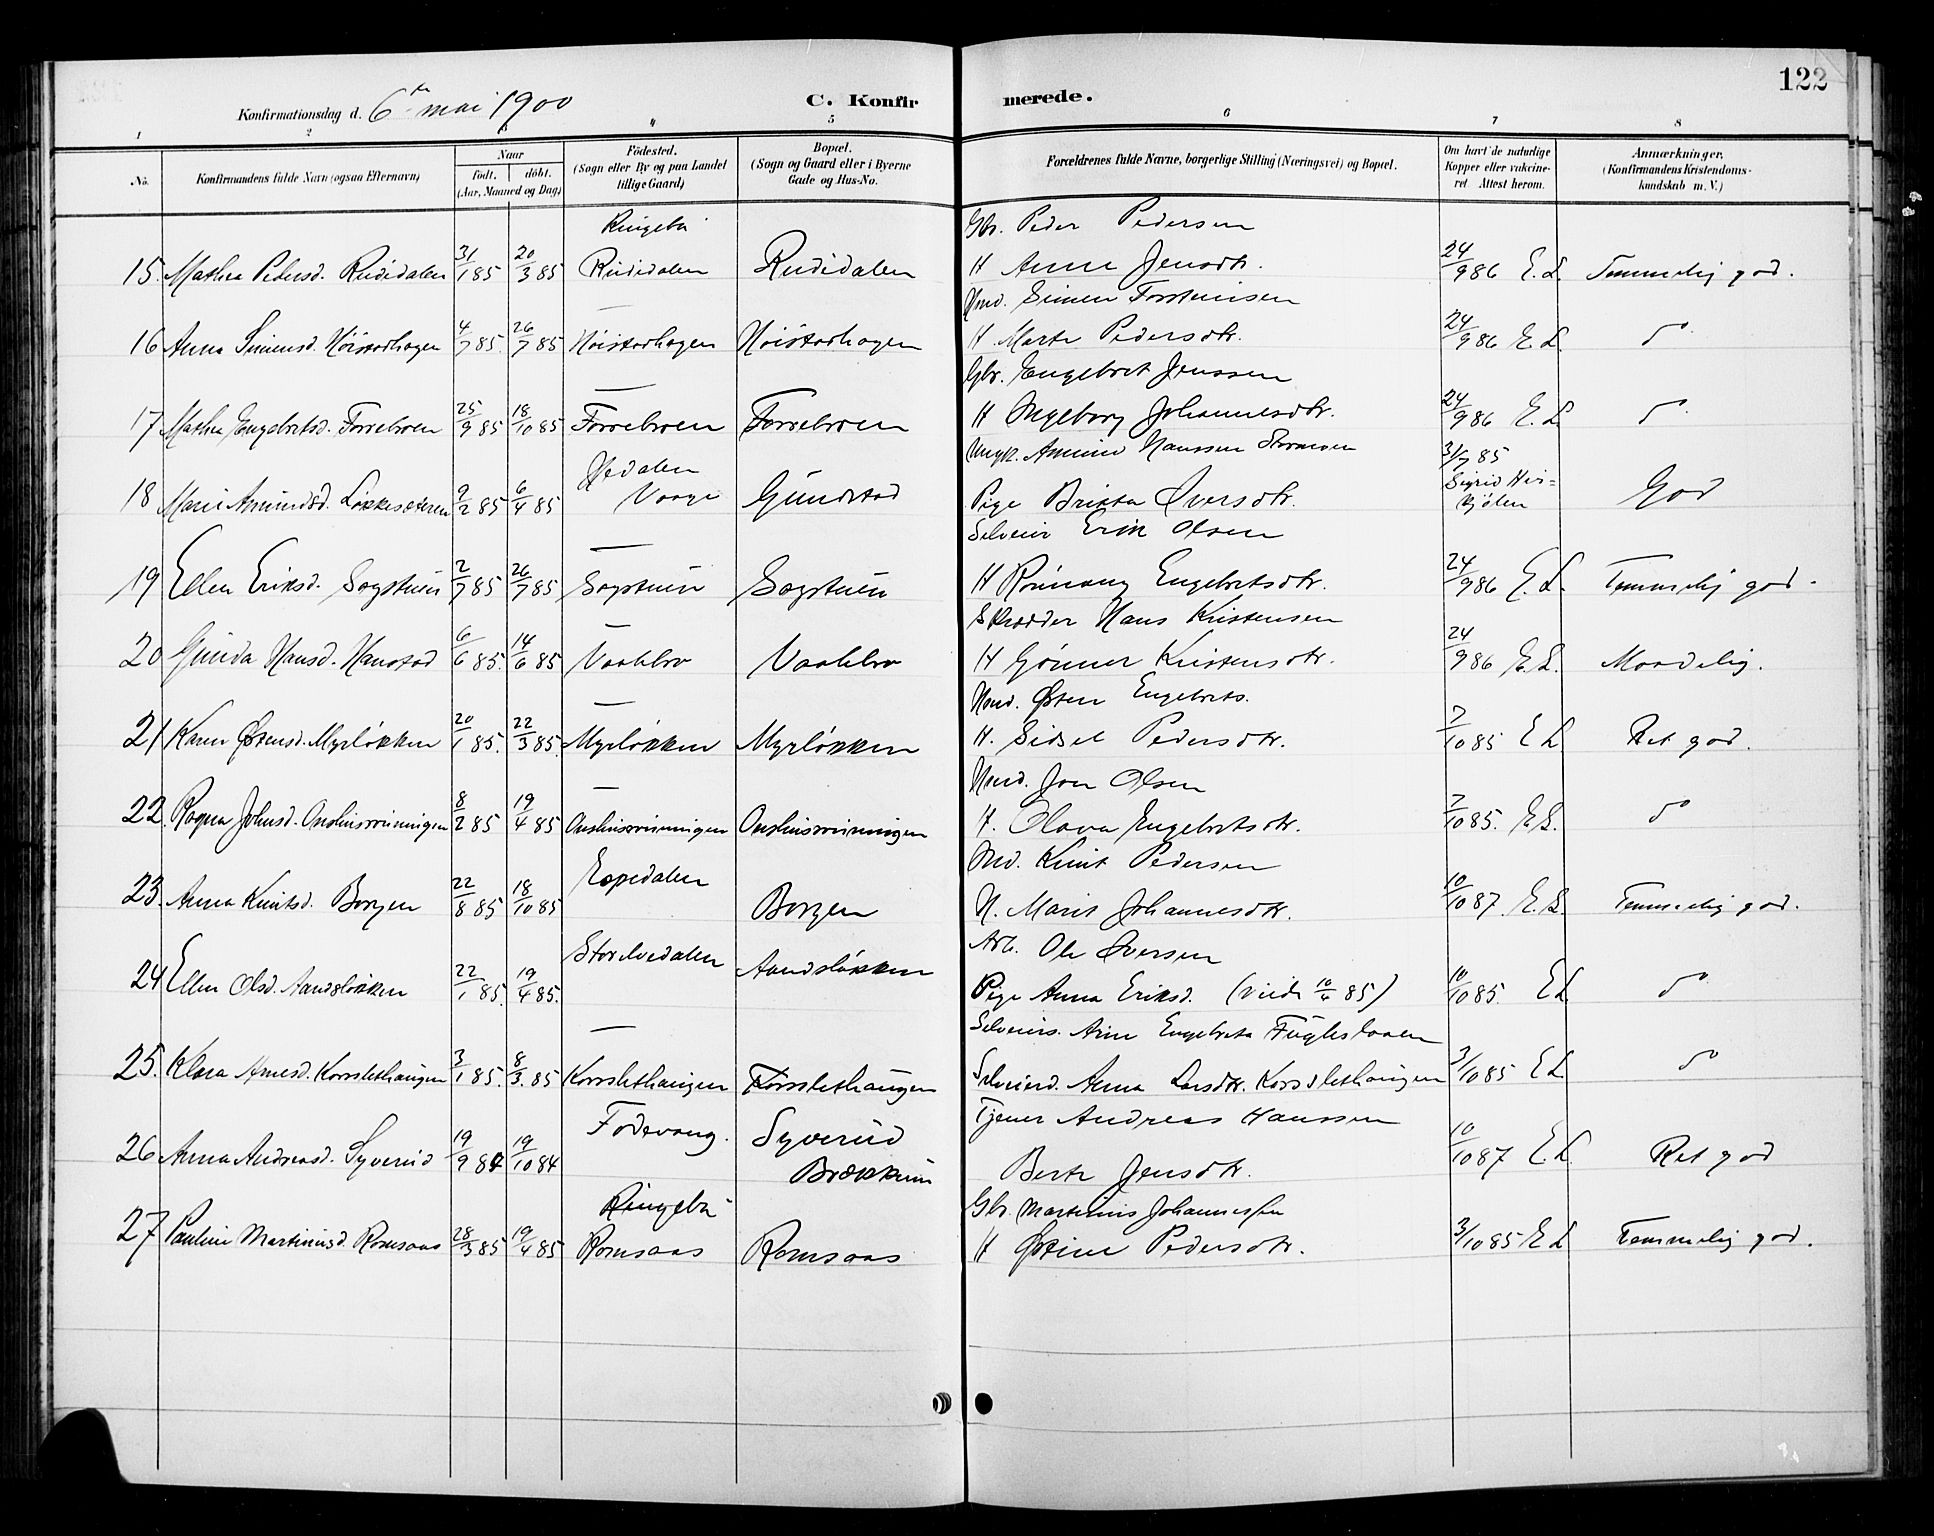 122
Konfirmationsdag d. 6te mai 1900
C. Konfirmerede.
1 2 3 4 5 6 7 8
No.
Konfirmandens fulde Navn (ogsaa Efternavn)
Naar
født. døbt.
(Aar, Maaned og Dag)
Fødested.
(Sogn eller By og paa Landet
tillige Gaard)
Bopæl.
(Sogn og Gaard eller i Byerne
Gade og Hus-No.
Forældrenes fulde Navne, borgerlige Stilling (Næringsvei) og Bopæl.
Om havt de naturlige
Kopper eller vakcine-
ret Attest herom.
Anmærkninger.
(Konfirmandens Kristendoms-
kundskab m. V.)
Ringebu Gbr. Peder Pedersen
15. Mathea Pedersd. Rudidalen 31/1 85 20/3 85 Rudidalen Rudidalen H Anne Jensdtr. 24/9 86 E. L. Temmelig god.
— Hmd. Simen Torstensen
16 Anna Simensd. Høistadhagen 4/7 85. 26/7 85 Høistadhagen Høistadhagen H. Marte Pedersdtr. 24/9 86 E. L. do
— Gbr. Engebret Jenssen
17 Mathea Engebretsd. Forrebroen 25/9 85 18/10 85 Forrebroen Forrebroen H Ingeborg Johannesdtr. 24/9 86 E. L. do
Hedalen Ungk. Amund Hanssen 3/7 85
18 Marie Amundsd. Løkkesæteren 9/2 85 6/4 85 Vaage Gundstad Pige Brixta Iversdtr. Sigrid God
— Selveier Erik Olsen
19 Ellen Eriksd. Sagstuen 2/7 85 26/7 85 Sagstuen Sagstuen H Rønnaug Engebretsdtr. 24/9 86 E. L. Temmelig god.
— Skrædder Hans Kristensen
20 Gunda Hansd. Hanstad 6/6 85. 14/6 85 Vaalebro Vaalebro H Gønner Kristensdtr. 24/9 86 E. L. Maadelig.
— Hmd. Østen Engebrets.
21 Karen Østensd. Myrløkken 20/1 85. 22/3 85. Myrløkken Myrløkken H. Sidsel Pedersdtr. 7/10 85 E L Ret god.
— Hmd. Jon Olsen
22. Ragna Johnsd. Onshusrunningen 8/2 85 19/4 85 Onshusrunningen Onshusrunningen H. Olava Engebretsdtr. 7/10 85. E L. do
Espedalen Md. Knut Pedersen
23. Anna Knutsd. Borgen 22/8 85 18/10 85 Borgen H. Marit Johannesdtr. 10/10 87 E. L. Temmelig god.
Storelvedalen Arb. Ole Iversen
24 Ellen Olsd. Aandsløkken 22/1 85. 19/4 85. Aandsløkken Pige Anna Eriksd. (viede 10/4 85) 10/10 85. E L do
— Selveiers. Arne Engebrets
25. Klara Arnesd. Korsslethaugen 3/1 85. 8/3. 85 Korsslethaugen Korsslethaugen Selveierd. Anna Larsdtr. Korsslethaugen 3/10 85 E L. do
Fodevang. Syverud Tjener Andreas Hanssen
26 Anna Andreasd. Syverud 19/9 84 19/10 84 Brækkum Berte Jensdtr. 10/10 87 E. L. Ret god
Ringebu Gbr. Martinus Johannessen
27 Pauline Martinusd. Romsaas 28/3 85 19/4 85 Romsaas Romsaas H Østine Pedersdtr. 3/10 85 E L Temmelig god.